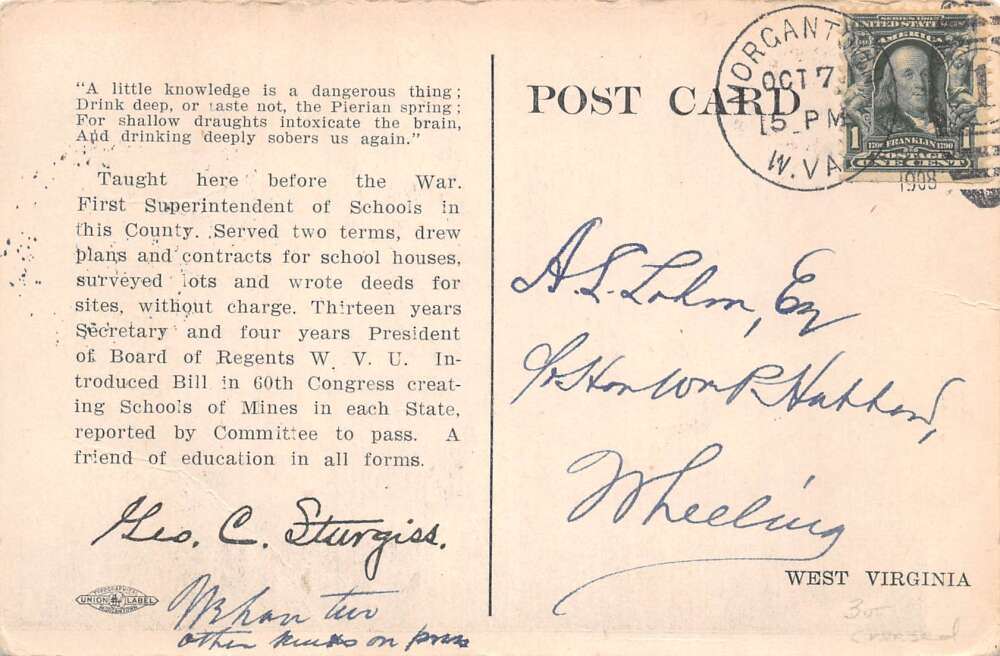 "A little knowledge is a dangerous thing;
Drink deep, or taste not, the Pierian spring;
For shallow draughts intoxicate the brain,
And drinking deeply sobers us again."
Taught here before the War.
First Superintendent of Schools in
this County. Served two terms, drew
plans and contracts for school houses,
surveyed lots and wrote deeds for
sites, without charge. Thirteen years
Secretary and four years President
of Board of Regents W. V. U. In-
troduced Bill in 60th Congress creat-
ing Schools of Mines in each State,
reported by Committee to pass. A
friend of education in all forms.
Geo. C. Sturgiss.
TYPOGRAPHICAL
UNION LABEL
MORGANTOWN
two
other on press
POST CARD
MORGANT
OCT 7
15 PM
W. VA
1908
SERIES 1902
UNITED STATES
AMERICA
1 1
1706 FRANKLIN 1790
POSTAGE
ONE CENT
A. L. Lohm, Esq
c/o Hon Wm P. Hubbard,
Wheeling
WEST VIRGINIA
3-
creased